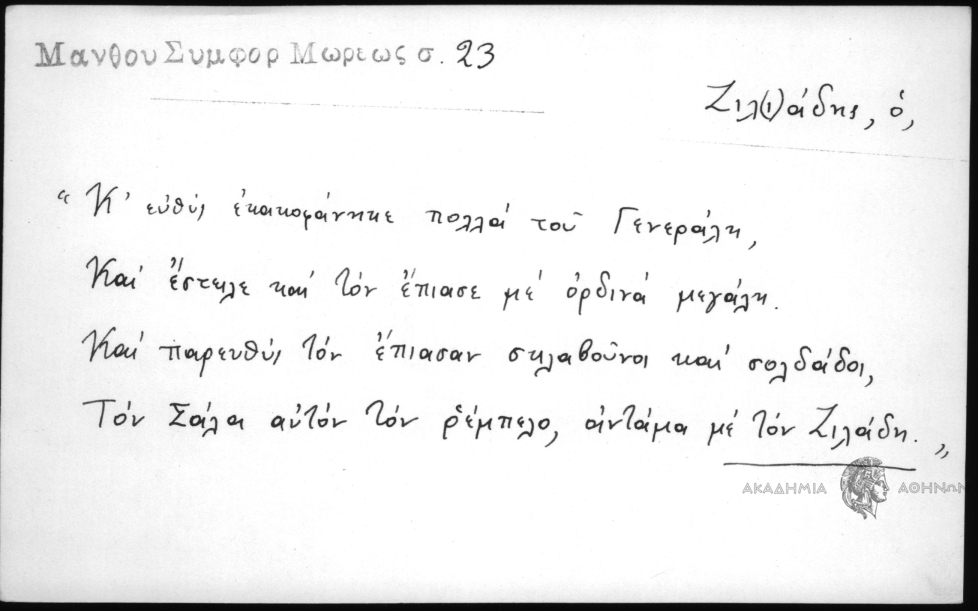 Μανθου Συμφορ Μωρεως σ. 23
Ζιλ(ι)άδης, ὁ,
“ Κ' εὐθὺς ἐκακοφάνηκε πολλὰ τοῦ Γενεράλη,
Καὶ ἔστειλε καὶ τὸν ἔπιασε μὲ ὀρδινὰ μεγάλη.
Καὶ παρευθὺς τὸν ἔπιασαν σκλαβοῦνοι καὶ σολδάδοι,
Τὸν Σάλα αὐτὸν τὸν ῥέμπελο, ἀντάμα μὲ τὸν Ζιλάδη. „
ΑΚΑΔΗΜΙΑ ΑΘΗΝΩΝ